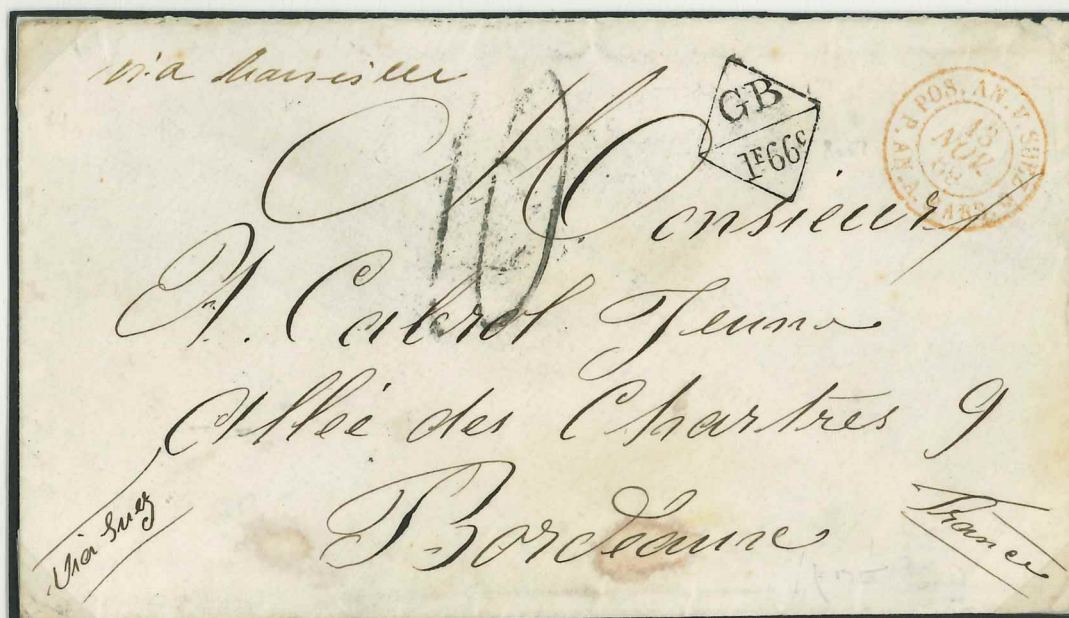 via Marseille
10
GB
1F66c
POS. AN. V. SUEZ
13
NOV
68
P. AN. A. MARS.
Monsieur
A. Cabrol Jeune
Allée des Chartres 9
Bordeaux
Via Suez
France